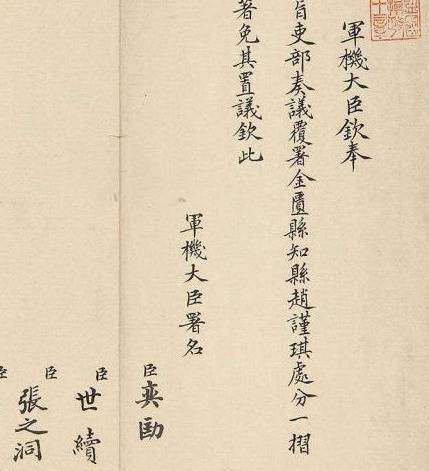 軍機大臣欽奉
旨吏部奏議覆署金匱縣知縣趙謹琪處分一摺
著免其置議欽此
軍機大臣署名
臣奕劻
臣世續
臣張之洞
臣